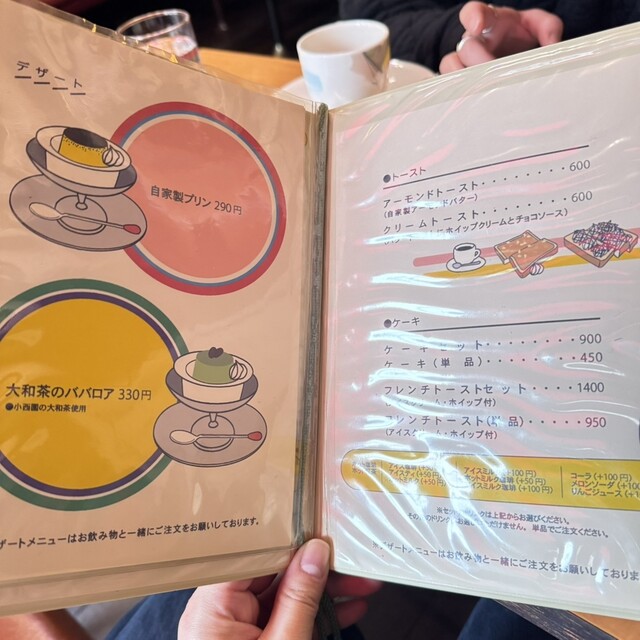 デザート
自家製プリン 290円
大和茶のババロア 330円
●小西園の大和茶使用
ザートメニューはお飲み物と一緒にご注文をお願いしております。
●トースト
アーモンドトースト・・・・・・・・600
(自家製アーモンドバター)
クリームトースト・・・・・・・・600
ホイップクリームとチョコソース)
●ケーキ
ケーキセット・・・・・・・・900
ケーキ(単品)・・・・・・・450
フレンチトーストセット・・・・・1400
(アイス ・ホイップ付)
フレンチトースト(単品)・・・・950
(アイス ・ホイップ付)
アイスミルク(+100円)
ホットミルク珈琲(+50円)
アイスミルク珈琲(+100円)
コーラ(+100円)
メロンソーダ(+1
りんごジュース(+
※セット は上記からお選びください。
その のドリンク だけません、単品でご注文ください。
ザートメニューはお飲み物と一緒にご注文をお願いしております